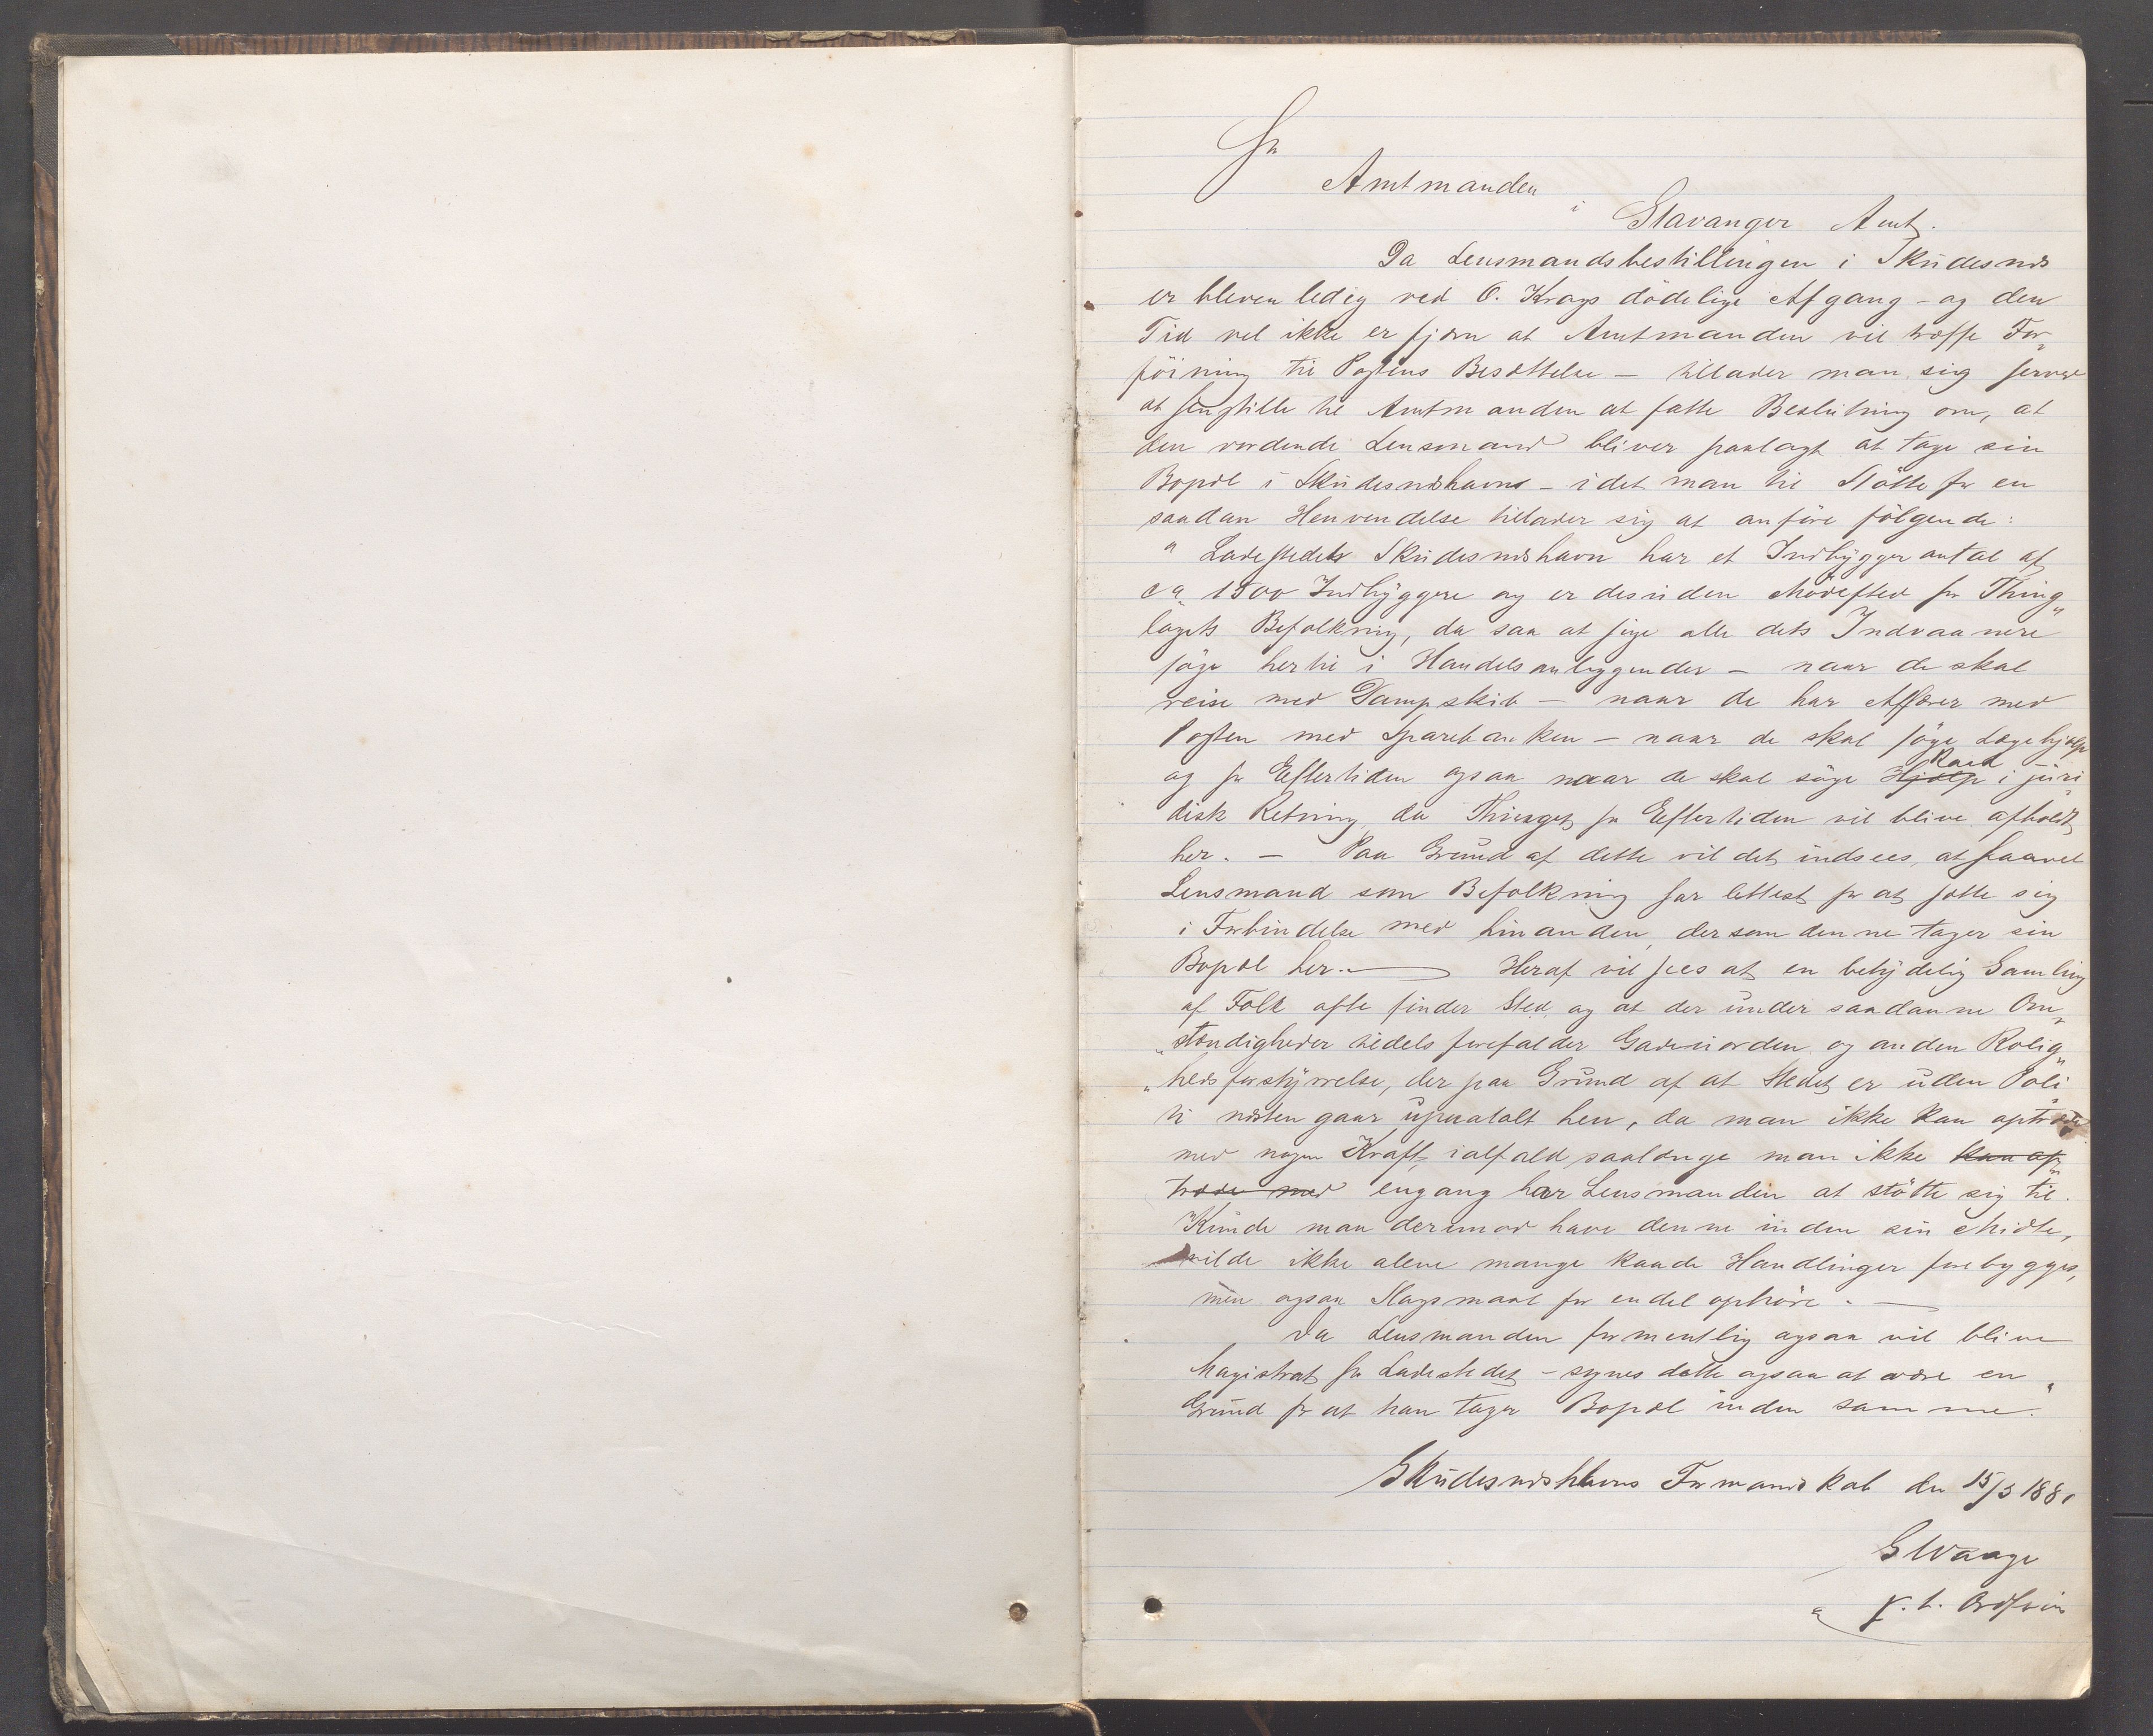 Hr
Amtmanden
i
Stavanger Amt.
Da Lensmandsbestillingen i Skudesnæs
er bleven ledig ved O. Krags dödelige Afgang - og den
Tid vel ikke er fjern at Amtmanden vil træffe For„
föining til Postens Besættelse - tillader man sig herved
at henstille til Amtmanden at fatte Beslutning om, at
den vordende Lensmand bliver paalagt at tage sin
Bopæl i Skudesnæshavns - idet man til Stötte for en
saadan Henvendelse tillader sig at anföre fölgende:
" Ladestedets Skudesnæshavn har et Indbyggerantal af
ca 1500 Indbyggere og er desuden Mödested for Thing„
lagets Befolkning, da saa at sige alle dets Indvaanere
söge hertil i Handelsanliggender - naar de skal
reise med Dampskib - naar de har Affærer med
Posten med Sparebanken - naar de skal söge Lægehjælp
og for Eftertiden ogsaa naar de skal söge Hjælp Raad i juri„
disk Retning, da Thinget for Eftertiden vil blive afholdt
her. - Paa Grund af dette vil det indsees, at saavel
Lensmand som Befolkning har lettest for at sætte sig
i Forbindelse med hinanden, dersom denne tager sin
Bopæl her. - Heraf vil sees at en betydelig Samling
af Folk ofte finder Sted og at der under saadanne Om„
„stændigheder tildels forefalder Gadeuorden og anden Rolig„
„hedsforstyrrelse, der paa Grund af at Stedet er uden Poli„
ti næsten gaar upaatalt hen, da man ikke kan optræde
med nogen Kraft, ialfald saalænge man ikke kan op„
træde med engang har Lensmanden at stötte sig til.
Kunde man derimod have denne inden sin Midte,
vilde ikke alene mange kaade Handlinger forebygges,
men ogsaa Slagsmaal for endel ophöre. -
Da Lensmanden formentlig ogsaa vil blive
Magistrat for Ladestedet - synes dette ogsaa at være en
Grund for at han tager Bopæl inden samme.
Skudesnæshavns Formandskab den 15/3 1881
G Waage
p.t. Ordförer